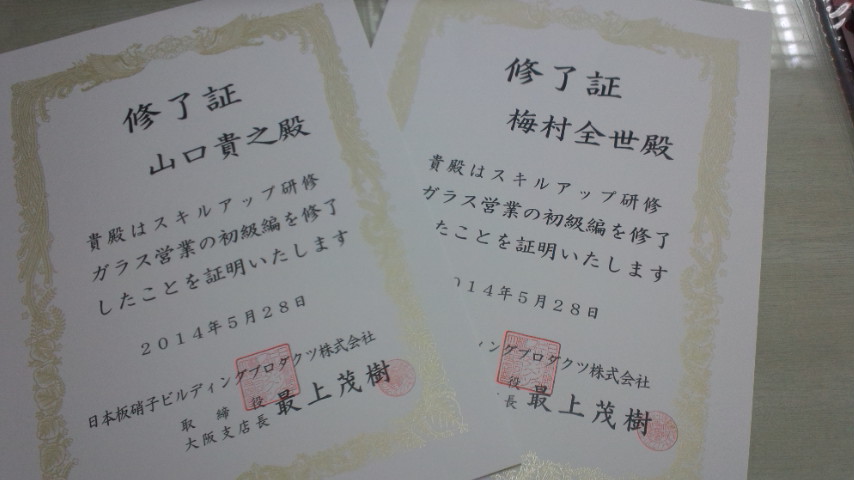 修了証
山口貴之殿
貴殿はスキルアップ研修
ガラス営業の初級編を修了
したことを証明いたします
2014年5月28日
日本板硝子ビルディングプロダクツ株式会社
取締役
大阪支店長 最上茂樹
修了証
梅村全世殿
貴殿はスキルアップ研修
ガラス営業の初級編を修了
たことを証明いたします
014年5月28日
ィングプロダクツ株式会社
役
長 最上茂樹